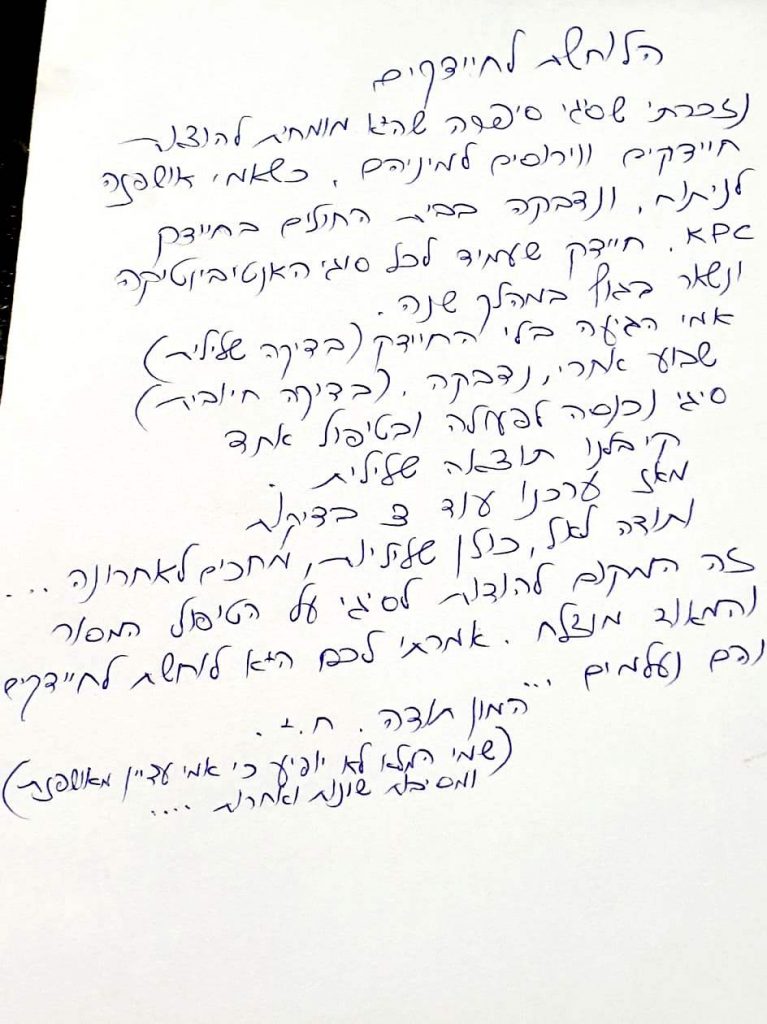 הלוחשת לחיידקים
נזכרתי שסיגי סיפרה שהיא מומחית להוצאת
חיידקים ווירוסים למיניהם. כשאמי אושפזה
לניתוח, ונדבקה בבית החולים בחיידק
KPC. חיידק שעמיד לכל סוגי האנטיביוטיקה
ונשאר בגוף במהלך שנה.
אמי הגיעה בלי החיידק (בדיקה שלילית)
שבוע אחרי, נדבקה. (בדיקה חיובית)
סיגי נכנסה לפעולה ובטיפול אחד
קיבלנו תוצאה שלילית.
מאז ערכנו עוד 3 בדיקות
ותודה לאל, כולן שליליות, מחכים לאחרונה ...
זה המקום להודות לסיגי על הטיפול המסור
והמאוד מוצלח. אמרתי לכם היא לוחשת לחיידקים
והם נעלמים ...
המון תודה. ח.
(שמי המלא לא יופיע כי אמי עדיין מאושפזת)
ומסיבות שונות ואחרות ....